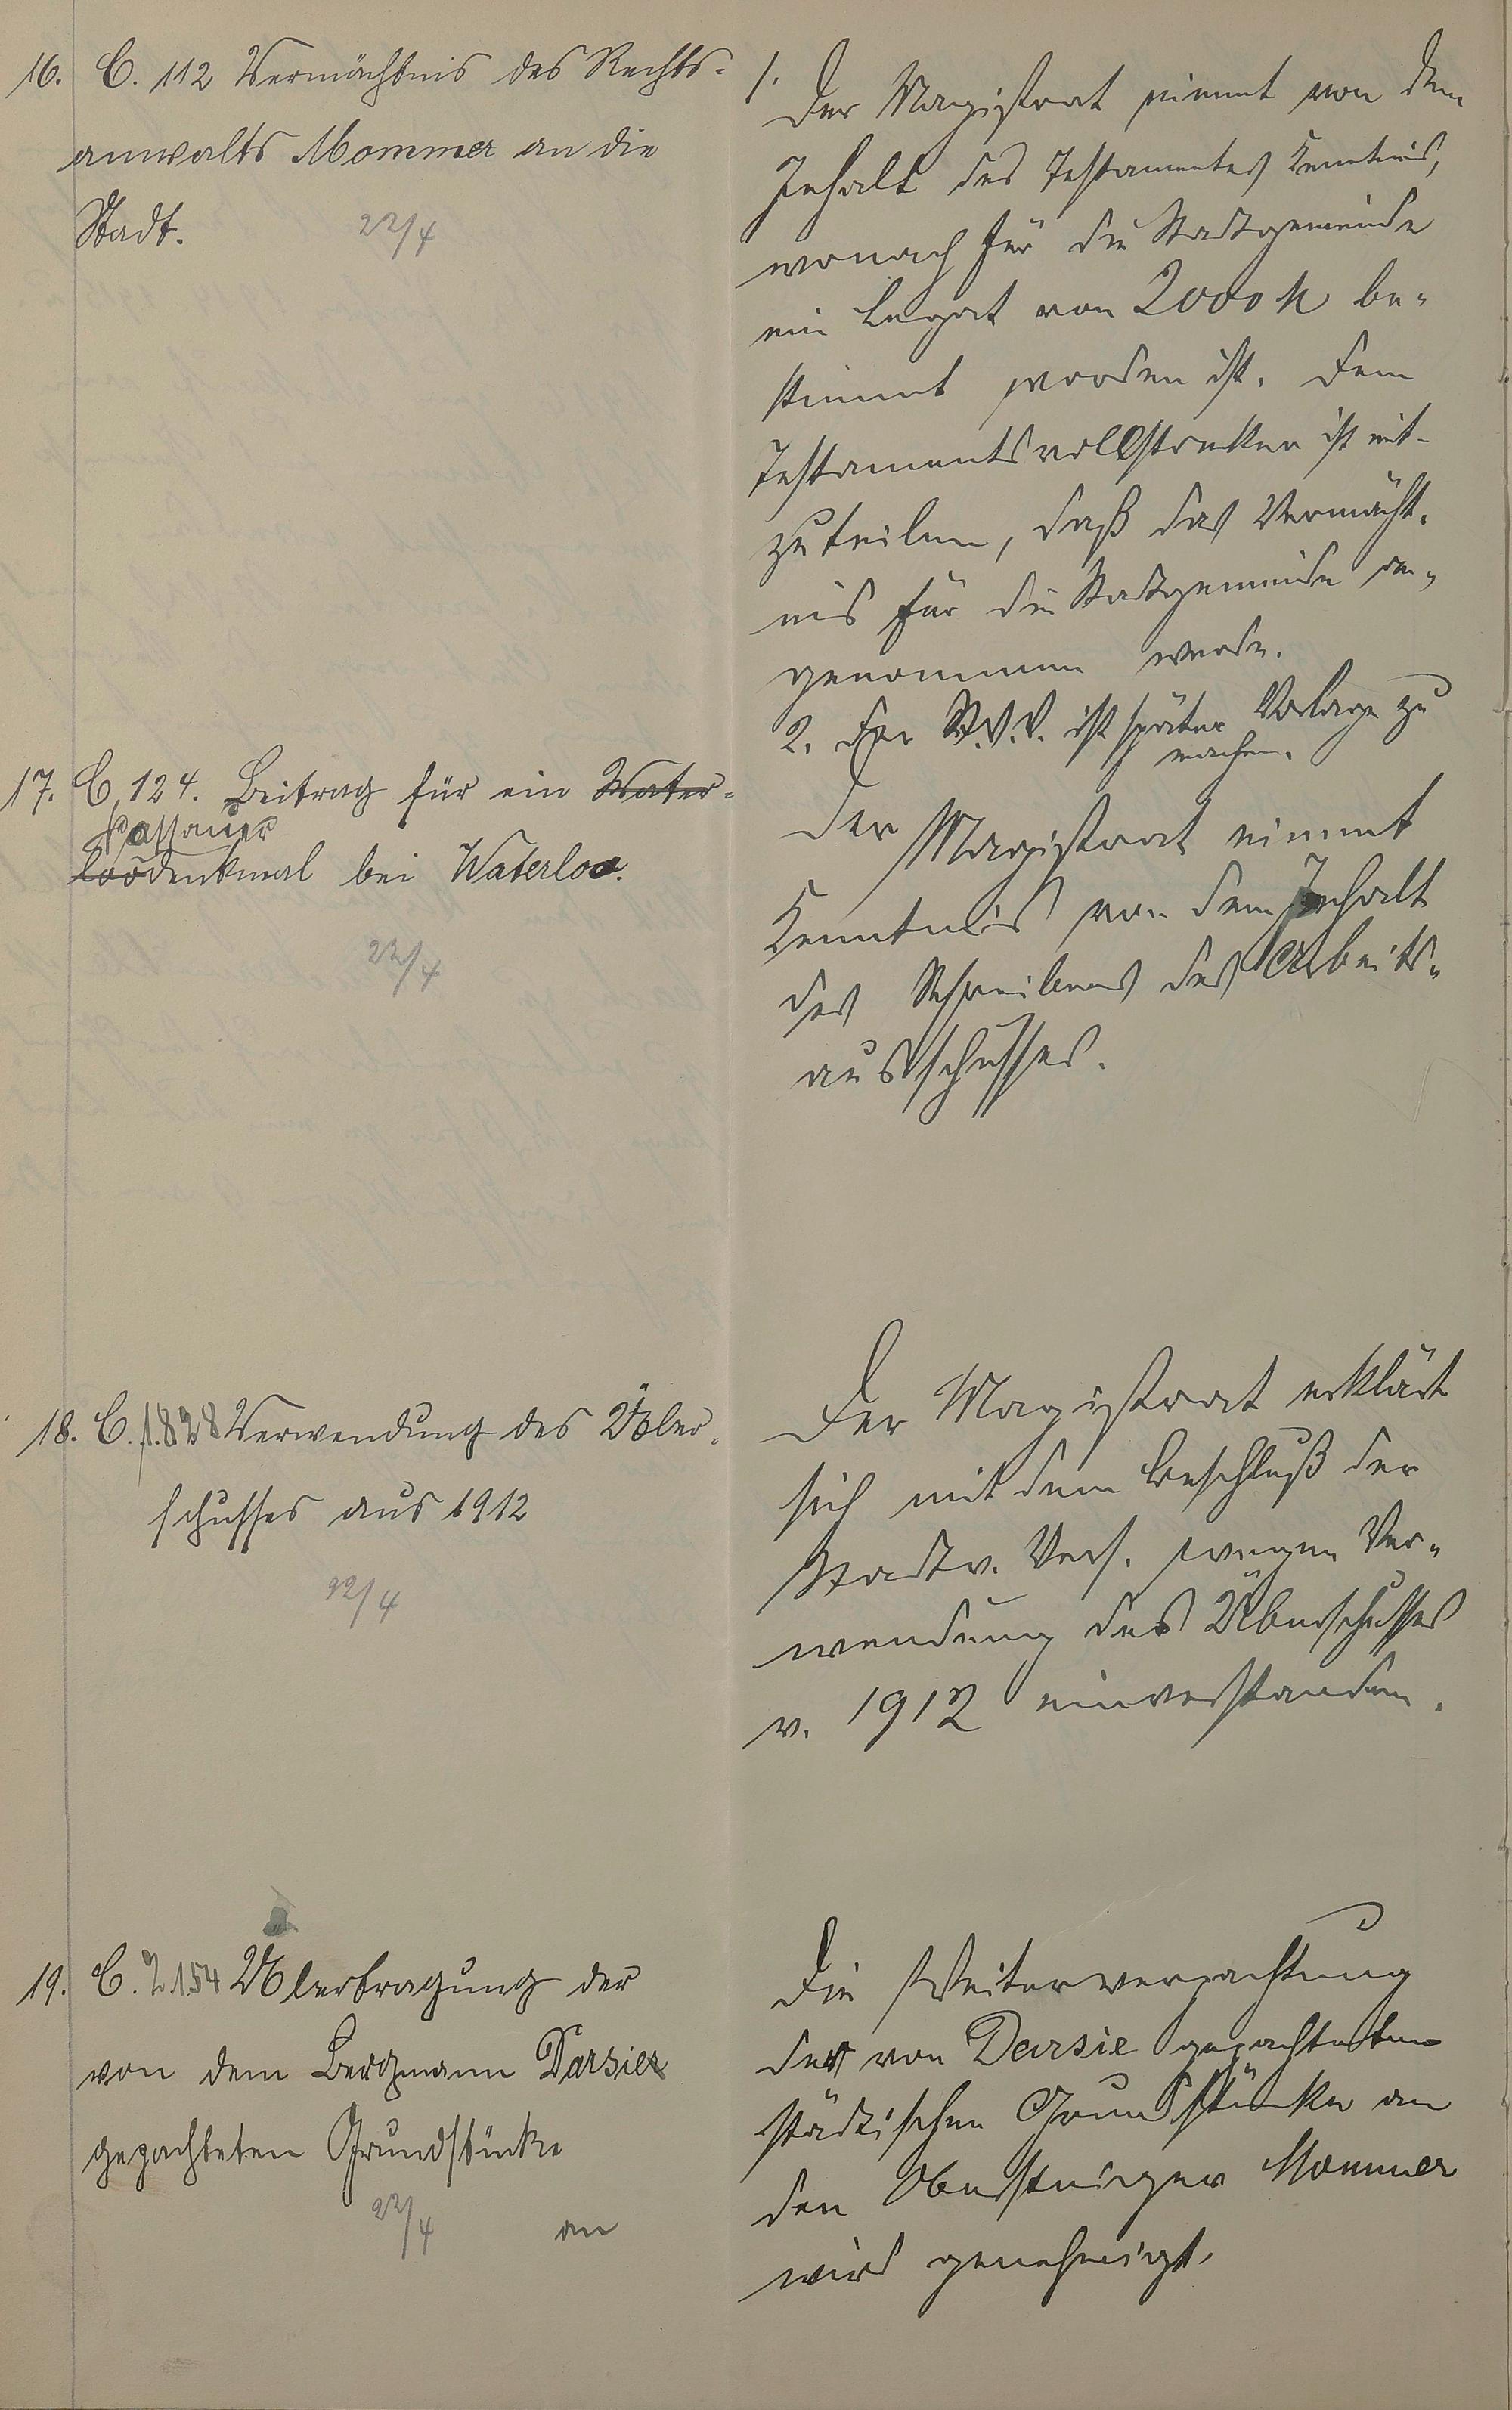 16. C. 112 Vermächtnis des Rechts-
anwalts Mommer an die
Stadt.
22/4
1. Der Magistrat nimmt von dem
Inhalt des Testamentes Kenntnis,
wonach für die Stadtgemeinde
ein Legat von 2000 M be-
stimmt worden ist. Dem
Testamentsvollstrecker ist mit-
zuteilen, daß das Vermächt-
nis für die Stadtgemeinde an-
genommen werde.
2. Der St.V.V. ist später Vorlage zu
machen.
17. C. 124. Beitrag für ein Water-
Nassauer
loodenkmal bei Waterloo.
22/4
Der Magistrat nimmt
Kenntnis von dem Inhalt
des Schreibens des Arbeits-
ausschusses.
18. C. 1.828 Verwendung des Über-
schusses aus 1912
22/4
Der Magistrat erklärt
sich mit dem Beschluß der
Stadtv. Vers. wegen Ver-
wendung des Überschusses
v. 1912 einverstanden.
19. C. 2.154 Übertragung der
von dem Bergmann Darsie
gepachteten Grundstücke
22/4
an
Die Weiterverpachtung
der von Darsie gepachteten
städtischen Grundstücke an
den Obersteiger Mommer
wird genehmigt.